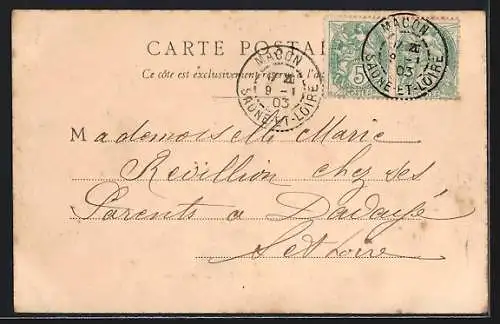 CARTE POSTA
Ce côté est exclusivement réservé à l'a
MACON
9 - 1
03
SAONE-ET-LOIRE
MACON
9 - 1
03
SAONE-ET-LOIRE
5
POSTES
Mademoiselle Marie
Revillion chez ses
Parents a
S et Loire